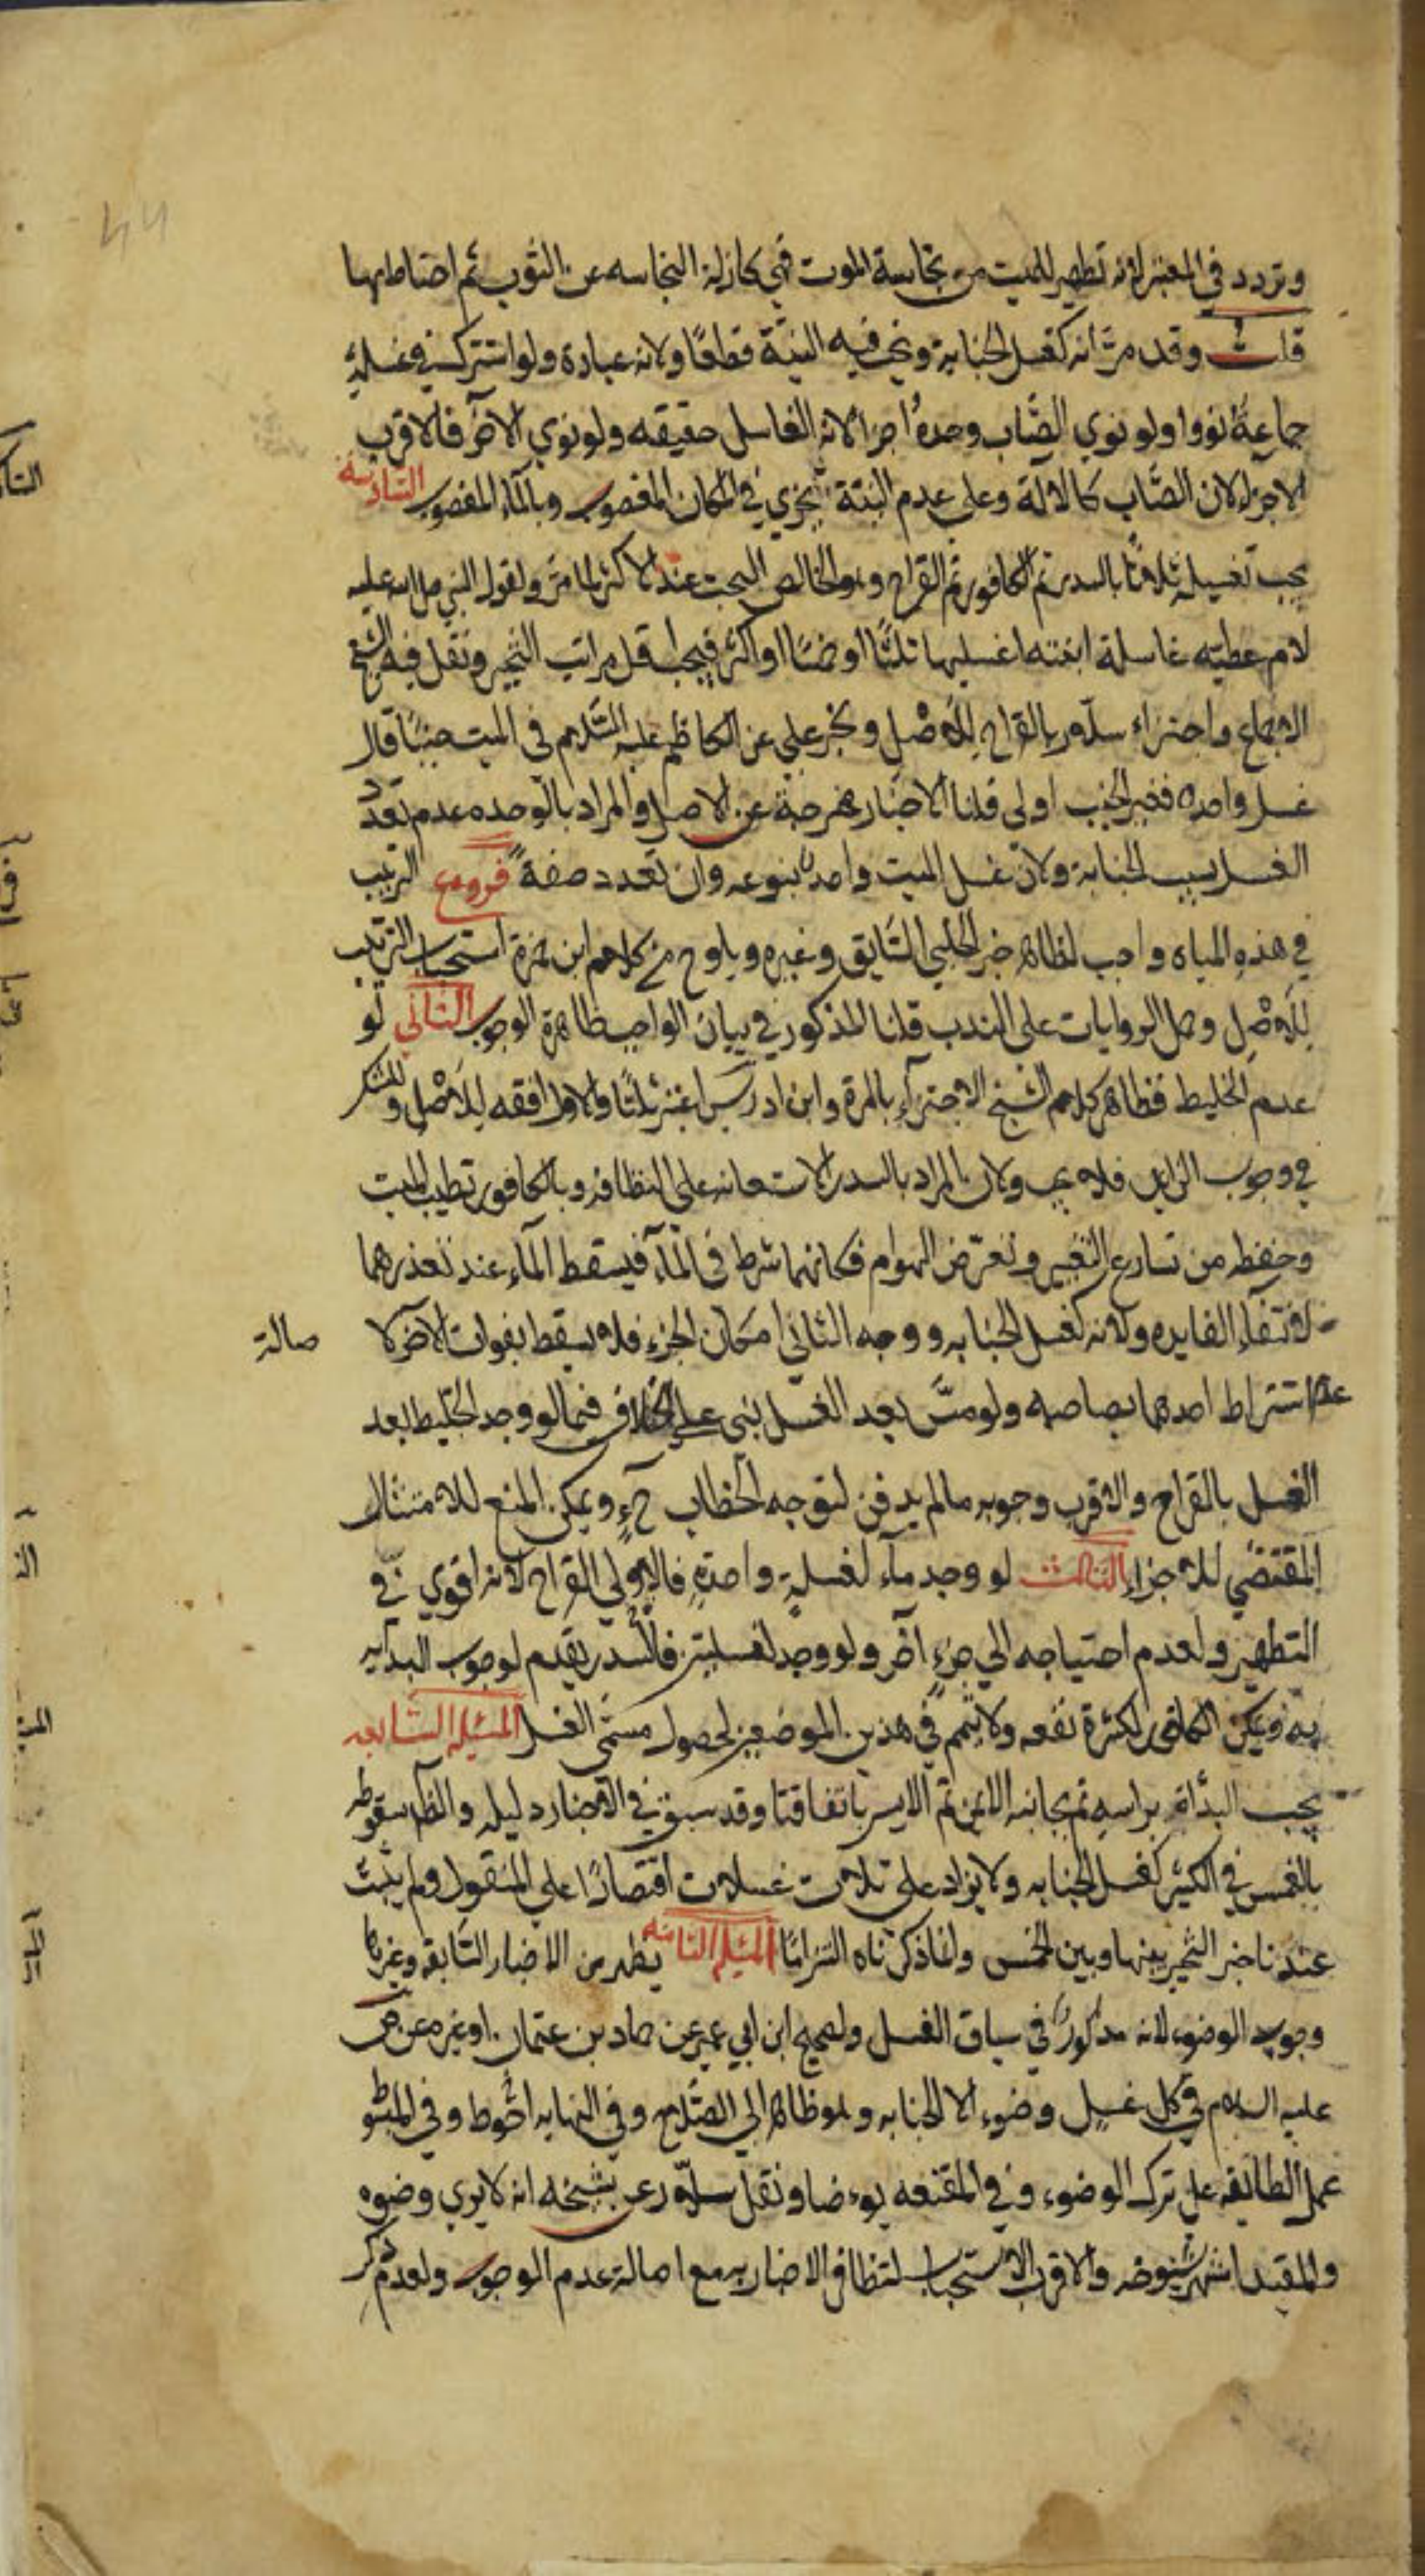 وتردد في المعتبر لانه تطهير للميت من نجاسة الموت فهي كازلة النجاسه عن الثوب ثم احتاط بها
قلت وقد مرّ انه كغسل الجنابة وتجب فيه النيّة قطعًا ولانه عبادة ولو اشترك في غسله
جماعةٌ نووا ولو نوي الصّاب وحدهُ اجزا لانه الغاسل حقيقه ولو نوي الآخر فالاقرب
الاجزاء لان الصّاب كالآلة وعلى عدم النية يجزي في المكان المغصوب وبالماء المغصوب السّادسة
يجب تغسيله ثلاثًا بالسدر ثم الكافور ثم القراح وهو الخالص البحت عند الاكثر لما مرّ ولقول النبي صلى الله عليه
لام عطيته غاسلة ابنته اغسليها ثلثًا او خمسًا او اكثر فيجب اقل مراتب التخيير ونقل فيه الشيخ
الاجماع واجتزاء سلّار بالقراح للاصْل و بخبر علي عن الكاظم عليه السّلام في الميت جنبًا قال
غسل واحده فغير الجنب اولى قلنا الاخبار مخرجة عن الاصل والمراد بالوحده عدم تعدّد
الغسل بسبب الجنابة ولان غسل الميت واحد بنوعه وان تعدد صفةً فروع الترتيب
في هذه المياه واجب لظاهر خبر الحلبي السّابق وغيره ويلوح من كلام ابن حمزة استحباب الترتيب
للاصْل وحمل الروايات على الندب قلنا المذكور في بيان الواجب ظاهرة الوجوب الثاني لو
عدم الخليط فظاهر كلام الشيخ الاجتزآء بالمرة وابن ادريس اعتبر ثلثًا والاول افقه للاصْل وللشك
في وجوب الزايد فلا يجب ولان المراد بالسدر الاستعانه على النظافه وبالكافور تطييب الميت
وحفظه من تسارع التغيير وتعرّض الهوام فكانهما شرط في المآء فيسقط المآء عند تعذرهما
لانتفاء الفايده ولانه كغسل الجنابه ووجه الثاني امكان الجزء فلا يسقط بفوات الآخر لا صالة
عدم اشتراط احدهما بصاحبه ولو مسّ بعد الغسل بنى على الخلاف فيما لو وجد الخليط بعد
الغسل بالقراح والاقرب وجوبه مالم يدفن لتوجه الخطاب ح ويمكن المنع للامتثال
المقتضي للاجزاء الثالث لو وجد مآء لغسلةٍ واحدةٍ فالاولى القراح لانه اقوي في
التطهير ولعدم احتياجه الي جزءٍ آخر ولو وجد لغسلتين فالسّدر يقدم لوجوب البدايه
به ويمكن الكافور لكثرة نفعه ولا يتمم في هذين الموضعين لحصول مسمّى الغسل المسئله السّابعه
يجب البدأة براسه ثم بجانبه الايمن ثم الايسر باتفاقنا وقد سبق في الاخبار دليله والظّ سقوطه
بالغمس في الكثير كغسل الجنابه ولا يزاد على ثلاث غسلات اقتصارًا على المنقول ولم يثبت
عندنا خبر التخيير بينها وبين الخمس وانما ذكرناه التزامًا المسئله الثامنه يظهر من الاخبار السّابقه وغيرها
وجوب الوضوء لانه مذكورٌ في سياق الغسل ولصحيح ابن ابي عمير عن حماد بن عثمان او غيره عن ص
عليه السلام في كل غسل وضوء الا الجنابه وهو ظاهر ابي الصّلاح وفي النهايه احوط وفي المبسُو
عمل الطائفه على ترك الوضوء وفي المقنعه يوءضا ونقل سلّار عن شيخه انه لا يري وضوه
والمفيد اشهر شيوخه والاقرب الاستحباب لتظافر الاخبار به مع اصالة عدم الوجوب ولعدم ذكر